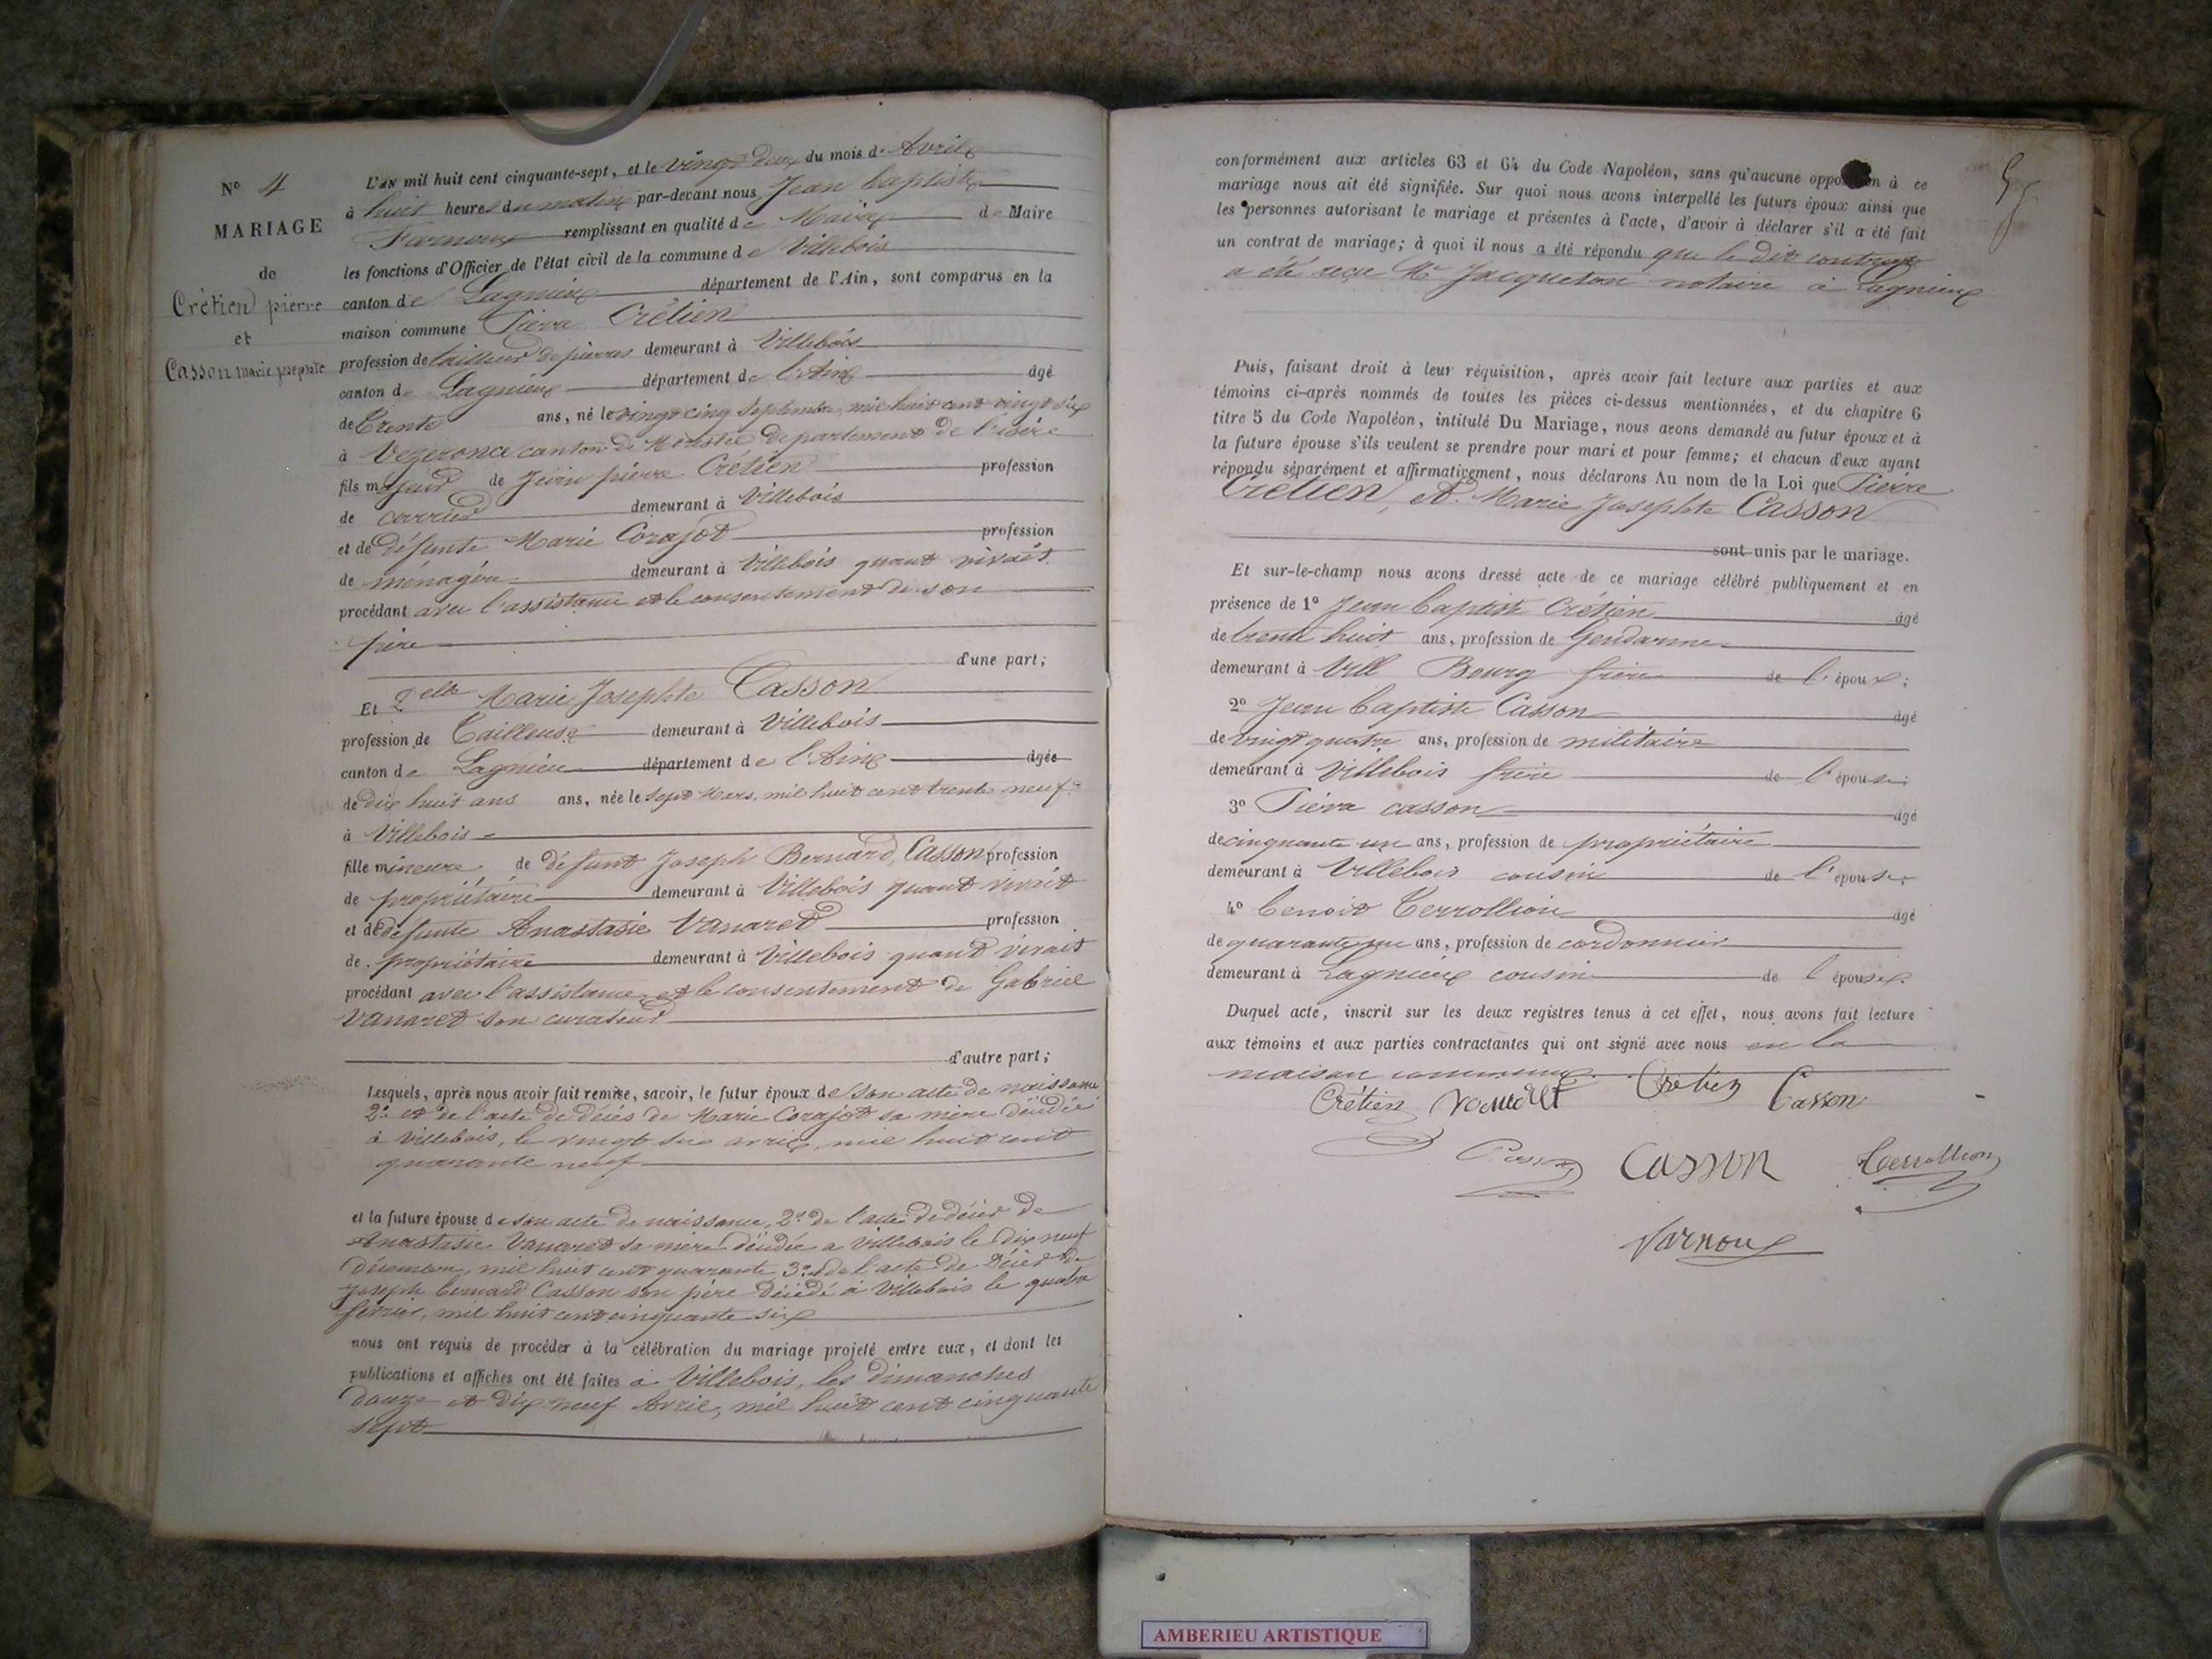 N° 4
MARIAGE
de
Crétien pierre
et
Casson marie josephte
L'AN mil huit cent cinquante-sept, et le vingt deux du mois d' Avril
à huit heures du matin par-devant nous Jean baptiste
Varnoux remplissant en qualité de Maire de Maire
les fonctions d'Officier de l'état civil de la commune de Villebois
canton de Lagnieux département de l'Ain, sont comparus en la
maison commune Pierre Crétien
profession de tailleur de pierres demeurant à Villebois
canton de Lagnieux département de l'Ain âgé
de trente ans, né le vingt cinq Septembre mil huit cent vingt six
à Vezeronce canton de Morestel département de l'isère
fils majeur de Jean pierre Crétien profession
de carrier demeurant à Villebois
et de défunte Marie Corajod profession
de ménagère demeurant à Villebois quant vivait
procédant avec l'assistance et le consentement de son
père
d'une part;
Et Delle Marie Josephte Casson
profession de Tailleuse demeurant à Villebois
canton de Lagnieu département de l'Ain âgée
de dix huit ans ans, née le sept Mars, mil huit cent trente neuf
à Villebois
fille mineure de défunt Joseph Bernard Casson profession
de propriétaire demeurant à Villebois quant vivait
et de défunte Anastasie Vanaret profession
de propriétaire demeurant à Villebois quant vivait
procédant avec l'assistance et le consentement de Gabriel
Vanaret son curateur
d'autre part;
Lesquels, après nous avoir fait remise, savoir, le futur époux de son acte de naissance
2° et de l'acte de décès de Marie Corajod sa mère décédée
à Villebois, le vingt six avril, mil huit cent
quarante neuf
et la future épouse de son acte de naissance, 2° de l'acte de décès de
Anastasie Vanaret sa mère décédée a Villebois le dix neuf
Décembre, mil huit cent quarante 3° de l'acte de décès de
Joseph bernard Casson son père décédé à Villebois le quatre
février, mil huit cent cinquante six
nous ont requis de procéder à la célébration du mariage projeté entre eux, et dont les
publications et affiches ont été faites à Villebois, les dimanches
douze et dix neuf Avril, mil huit cent cinquante
sept
conformément aux articles 63 et 64 du Code Napoléon, sans qu'aucune opposition à ce
mariage nous ait été signifiée. Sur quoi nous avons interpellé les futurs époux ainsi que
les personnes autorisant le mariage et présentes à l'acte, d'avoir à déclarer s'il a été fait
un contrat de mariage; à quoi il nous a été répondu que le dit contrat
a été reçu Me Jacqueton notaire à Lagnieux
Puis, faisant droit à leur réquisition, après avoir fait lecture aux parties et aux
témoins ci-après nommés de toutes les pièces ci-dessus mentionnées, et du chapitre 6
titre 5 du Code Napoléon, intitulé Du Mariage, nous avons demandé au futur époux et à
la future épouse s'ils veulent se prendre pour mari et pour femme; et chacun d'eux ayant
répondu séparément et affirmativement, nous déclarons Au nom de la Loi que Pierre
Crétien, et Marie Josephte Casson
sont unis par le mariage.
Et sur-le-champ nous avons dressé acte de ce mariage célébré publiquement et en
présence de 1° Jean baptiste Crétien âgé
de trente huit ans, profession de Gendarme
demeurant à Vill Bourg frère de l'époux;
2° Jean baptiste Casson âgé
de vingt quatre ans, profession de militaire
demeurant à Villebois frère de l'épouse;
3° Pierre casson âgé
de cinquante un ans, profession de propriétaire
demeurant à Villebois cousin de l'épouse;
4° benoit Terrollion âgé
de quarante un ans, profession de cordonnier
demeurant à Lagnieux cousin de l'épouse.
Duquel acte, inscrit sur les deux registres tenus à cet effet, nous avons fait lecture
aux témoins et aux parties contractantes qui ont signé avec nous en la
maison commune
Crétien Vanaret Cretien Casson
Casson Casson Terrollion
Varnoux
AMBERIEU ARTISTIQUE